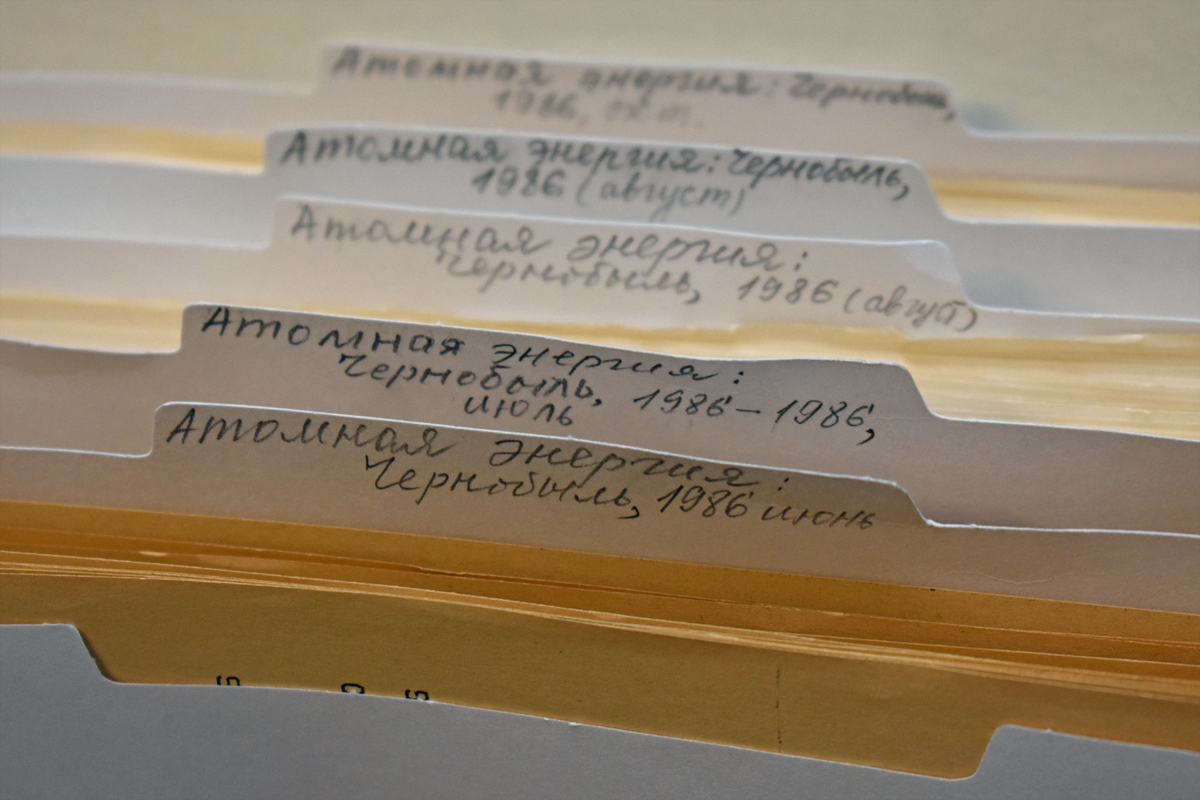 Атомная энергия: Чернобыль,
1986, окт.
Атомная энергия: Чернобыль,
1986 (август)
Атомная энергия:
Чернобыль, 1986 (август)
Атомная энергия:
Чернобыль, 1986 – 1986,
июль
Атомная энергия:
Чернобыль, 1986 июнь